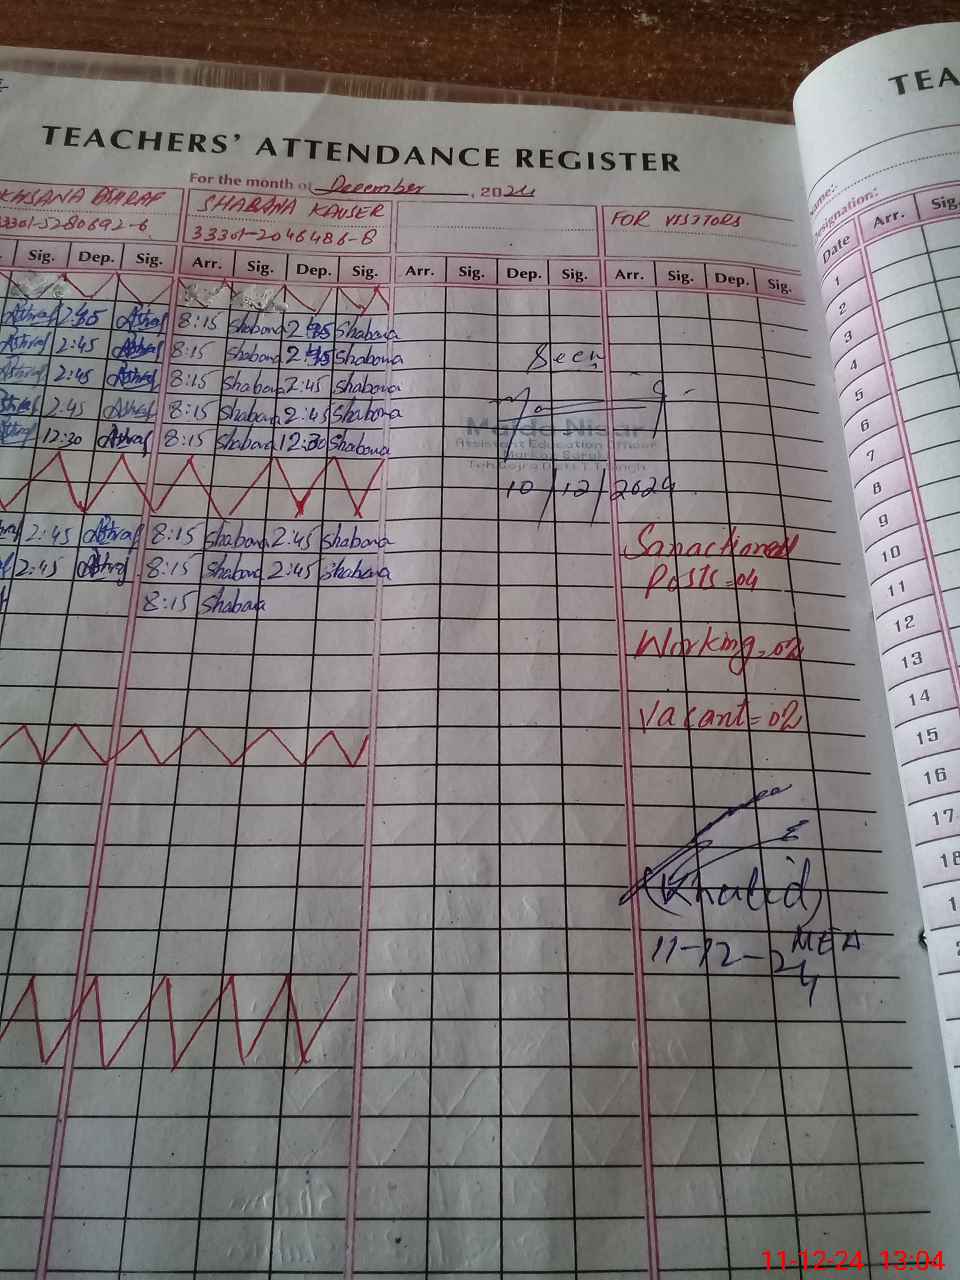 TEACHERS' ATTENDANCE REGISTER
TEA
For the month of December, 2024
KHSANA ASHRAF SHABANA KAUSER FOR VISITORS
33301-5280692-6 33301-2046486-8
Name:
Designation:
Sig. Dep. Sig. Arr. Sig. Dep. Sig. Arr. Sig. Dep. Sig. Arr. Sig. Dep. Sig.
Date Arr. Sig.
Ashraf 2:45 Ashraf 8:15 Shabana 2:45 Shabana
Ashraf 2:45 Ashraf 8:15 Shabana 2:45 Shabana
Ashraf 2:45 Ashraf 8:15 Shabana 2:45 Shabana
Ashraf 2:45 Ashraf 8:15 Shabana 2:45 Shabana
Ashraf 12:30 Ashraf 8:15 Shabana 12:30 Shabana
2:45 Ashraf 8:15 Shabana 2:45 Shabana
2:45 Ashraf 8:15 Shabana 2:45 Shabana
8:15 Shabana
Seen
Nisar
Assistant Education Officer
Teh Gojra Distt T.T.Singh
10/12/2024
Sanactioned
Posts=04
Working=02
Vacant=02
(Khalid)
MEA
11-12-24
1
2
3
4
5
6
7
8
9
10
11
12
13
14
15
16
17
18
11-12-24 13:04